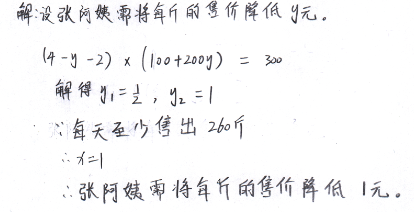 解:设张阿姨需将每斤的售价降低y元。
(4-y-2)×(100+200y) = 300
解得 y₁=½, y₂=1
∵每天至少售出260斤
∴x=1
∴张阿姨需将每斤的售价降低1元。